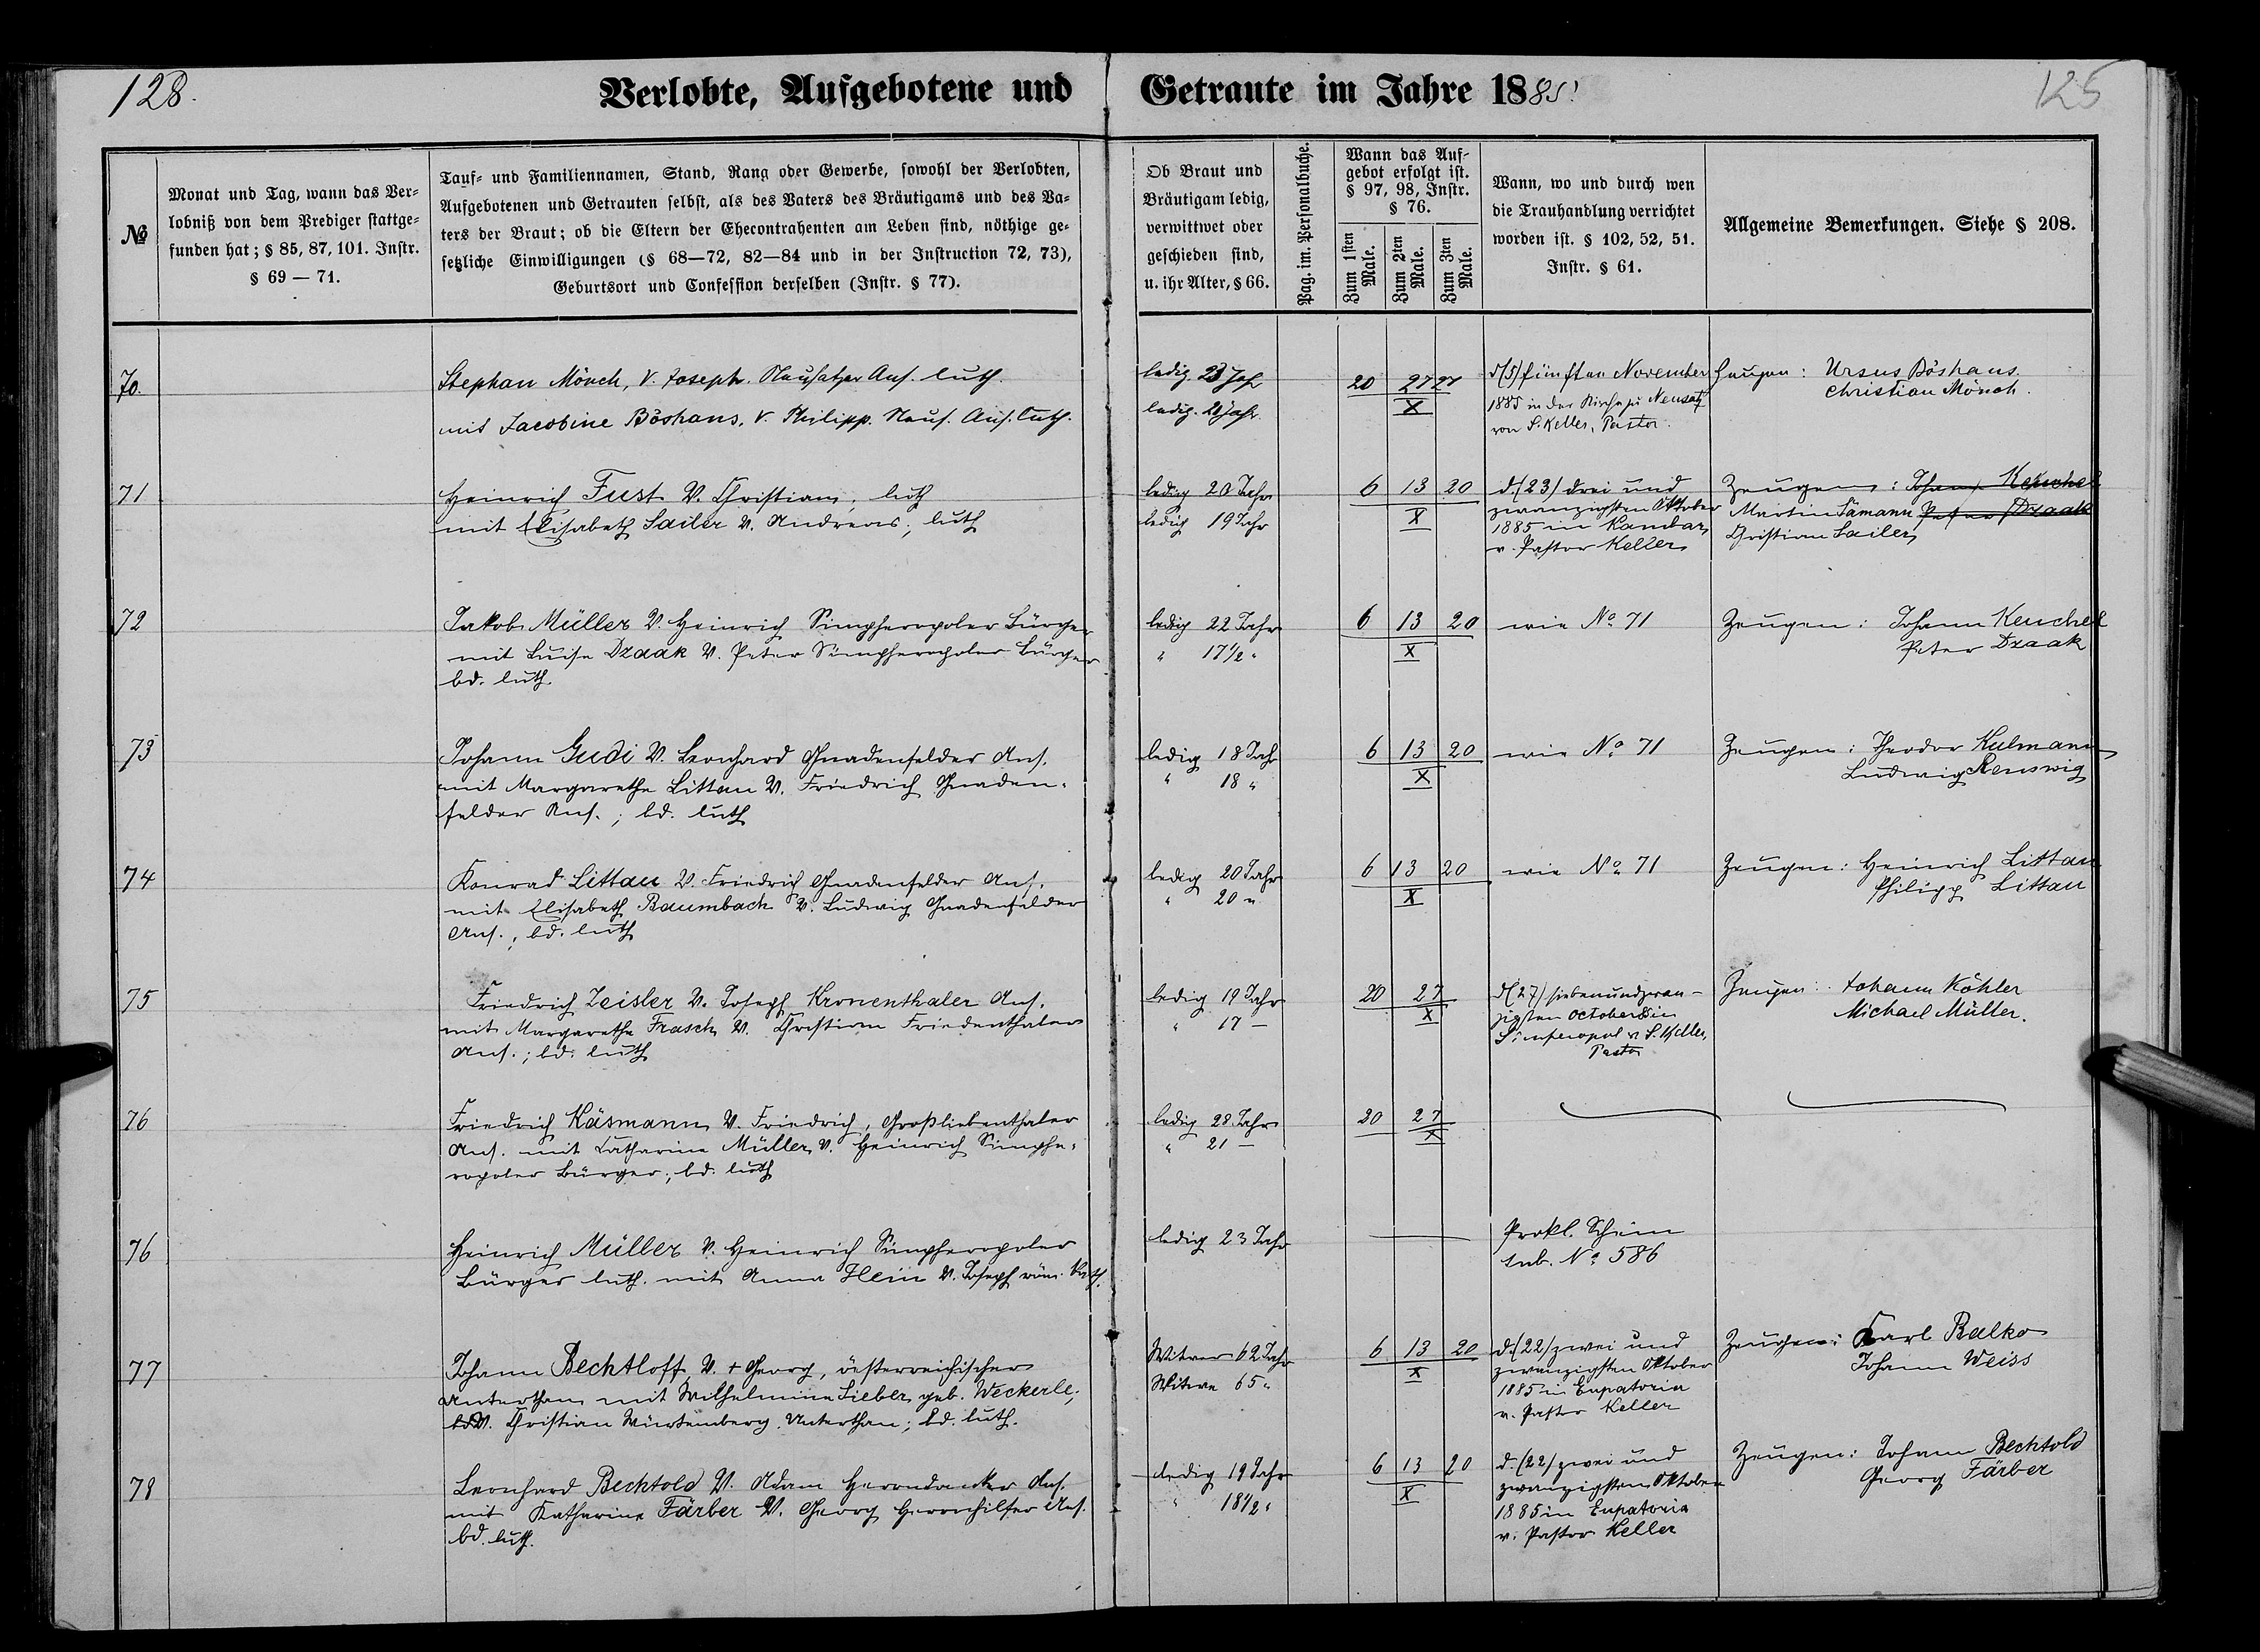 128.
125
Verlobte, Aufgebotene und Getraute im Jahre 1885!
№
Monat und Tag, wann das Ver-
lobniß von dem Prediger stattge-
funden hat; § 85, 87, 101. Instr.
§ 69 — 71.
Tauf- und Familiennamen, Stand, Rang oder Gewerbe, sowohl der Verlobten,
Aufgebotenen und Getrauten selbst, als des Vaters des Bräutigams und des Va-
ters der Braut; ob die Eltern der Ehecontrahenten am Leben sind, nöthige ge-
setzliche Einwilligungen (§ 68—72, 82—84 und in der Instruction 72, 73),
Geburtsort und Confession derselben (Instr. § 77).
Ob Braut und
Bräutigam ledig,
verwittwet oder
geschieden sind,
u. ihr Alter, § 66.
Pag. im. Personalbuche.
Wann das Auf-
gebot erfolgt ist.
§ 97, 98, Instr.
§ 76.
Zum 1sten Male.
Zum 2ten Male.
Zum 3ten Male.
Wann, wo und durch wen
die Trauhandlung verrichtet
worden ist. § 102, 52, 51.
Instr. § 61.
Allgemeine Bemerkungen. Siehe § 208.
70.
Stephan Mönch, V. Joseph. Neusatzer Ans. luth.
mit Jacobine Böshans, V. Philipp. Neus. Ans. luth.
ledig. 23 Jah
ledig. Jahr.
20 27 27
X
d (5) fünften November
1885 in der Kirche zu Neusatz
von S. Keller, Pastor.
Zeugen: Ursus Böshans.
Christian Mönch.
71
Heinrich Fust V. Christian; luth
mit Elisabeth Sailer V. Andreas; luth
ledig 20 Jahr
ledig 19 Jahr
6 13 20
X
d (23) drei und
zwanzigsten Oktober
1885 in Kambar
v. Pastor Keller
Zeugen: Johann Keuchel
Martin Sämann Peter Dzaak
Christian Sailer
72
Jakob Müller V. Heinrich Simpheropoler Bürger
mit Luise Dzaak V. Peter Simpheropoler Bürger
bd. luth.
ledig 22 Jahr
" 17½ "
6 13 20
X
wie № 71
Zeugen: Johann Keuchel
Peter Dzaak
73
Johann Gudi V. Leonhard Gnadenfelder Ans.
mit Margarethe Littau V. Friedrich Gnaden-
felder Ans.; bd. luth
ledig 18 Jah
" 18 "
6 13 20
X
wie № 71
Zeugen: Theodor Kulmann
Ludwig Renswig
74
Konrad Littau V. Friedrich Gnadenfelder Ans.
mit Elisabeth Baumbach V. Ludwig Gnadenfelder
Ans.; bd. luth
ledig 20 Jahr
" 20 "
6 13 20
X
wie № 71
Zeugen: Heinrich Littau
Philipp Littau
75
Friedrich Zeisler V. Joseph Kronenthaler Ans.
mit Margarethe Frasch V. Christian Friedenthaler
Ans.; bd. luth
ledig 19 Jahr
" 17 —
20 27
X
d (27) siebenundzwan-
zigsten October in
Simferopol v S. Keller,
Pastor
Zeugen: Johann Köhler
Michael Müller.
76
Friedrich Käsmann V. Friedrich, Großliebenthaler
Ans. mit Catharina Müller V. Heinrich Simphe-
ropoler Bürger; bd. luth
ledig 28 Jahr
" 21 —
20 27
X
76
Heinrich Müller V. Heinrich Simpheropoler
Bürger luth. mit Anna Hein V. Joseph röm. Kath.
ledig 23 Jahr
Prokl. Schein
sub. № 586
77
Johann Bechtloff V. + Georg, österreichischer
Unterthan mit Wilhelmine Lieber geb. Weckerle;
V. Christian Würtemberg. Unterthan; bd. luth.
Witwer 62 Jahr
Witwe 65 "
6 13 20
X
d. (22) zwei und
zwanzigsten Oktober
1885 in Eupatoria
v. Pastor Keller
Zeugen: Karl Balko
Johann Weiss
78
Leonhard Bechtold V. Adam Ans.
mit Katharine Färber V. Georg Herrnhilfer Ans.
bd. luth.
ledig 19 Jahr
" 18½ "
6 13 20
X
d. (22) zwei und
zwanzigsten Oktober
1885 in Eupatoria
v. Pastor Keller
Zeugen: Johann Bechtold
Georg Färber